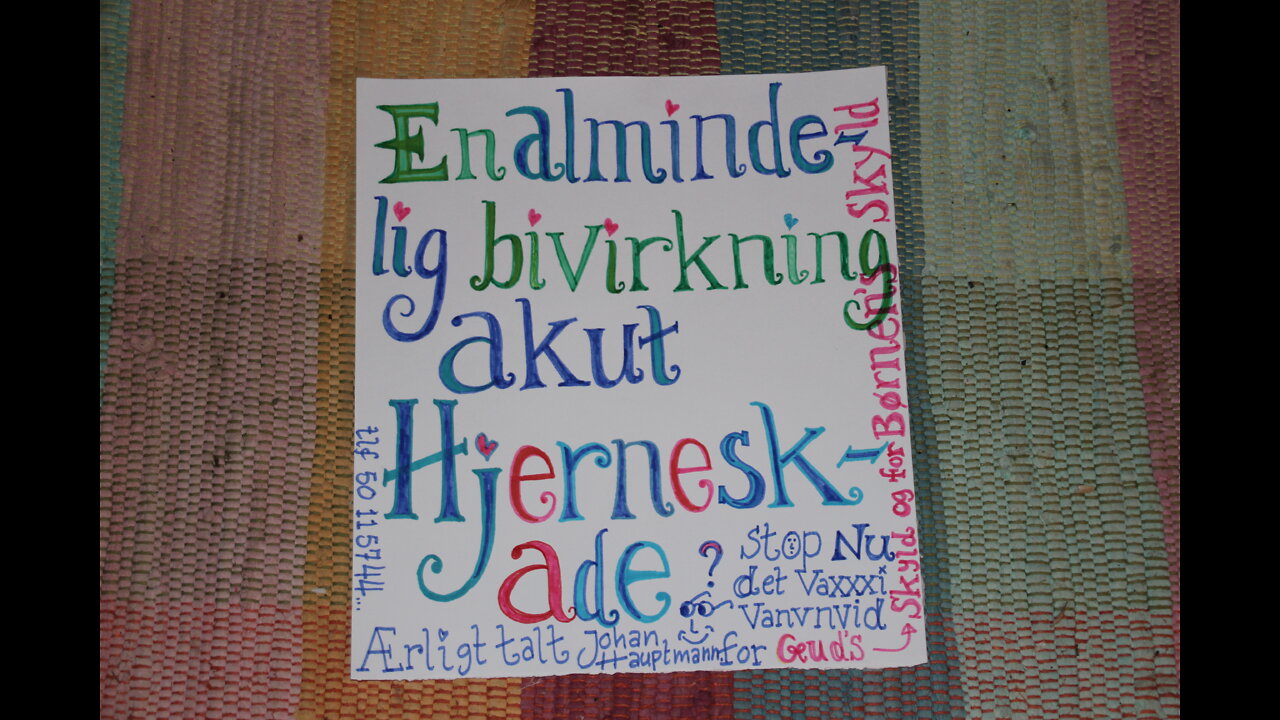 En alminde-
lig bivirkning
akut
Hjernesk-
ade ?
Stop Nu
det Vaxxxi
Vanvnvid
Ærligt talt Johan
Hauptmann for Geud's
Skyld og for Børnen's Skyld
tlf 50 115744...